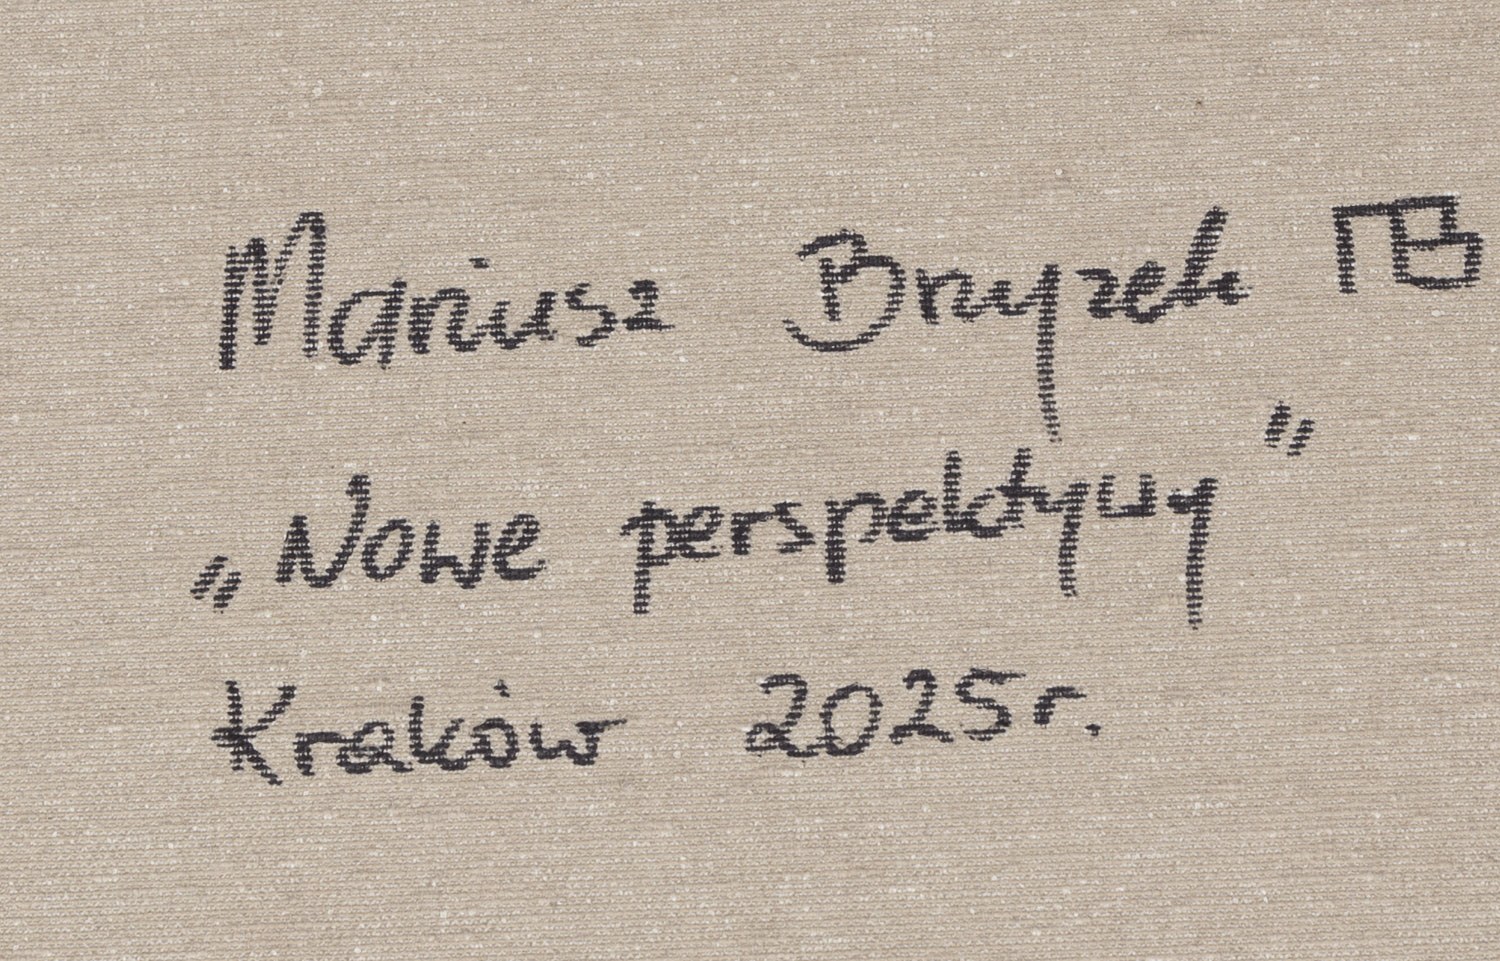 Mariusz Bryzek MB
„Nowe perspektywy”
Kraków 2025r.